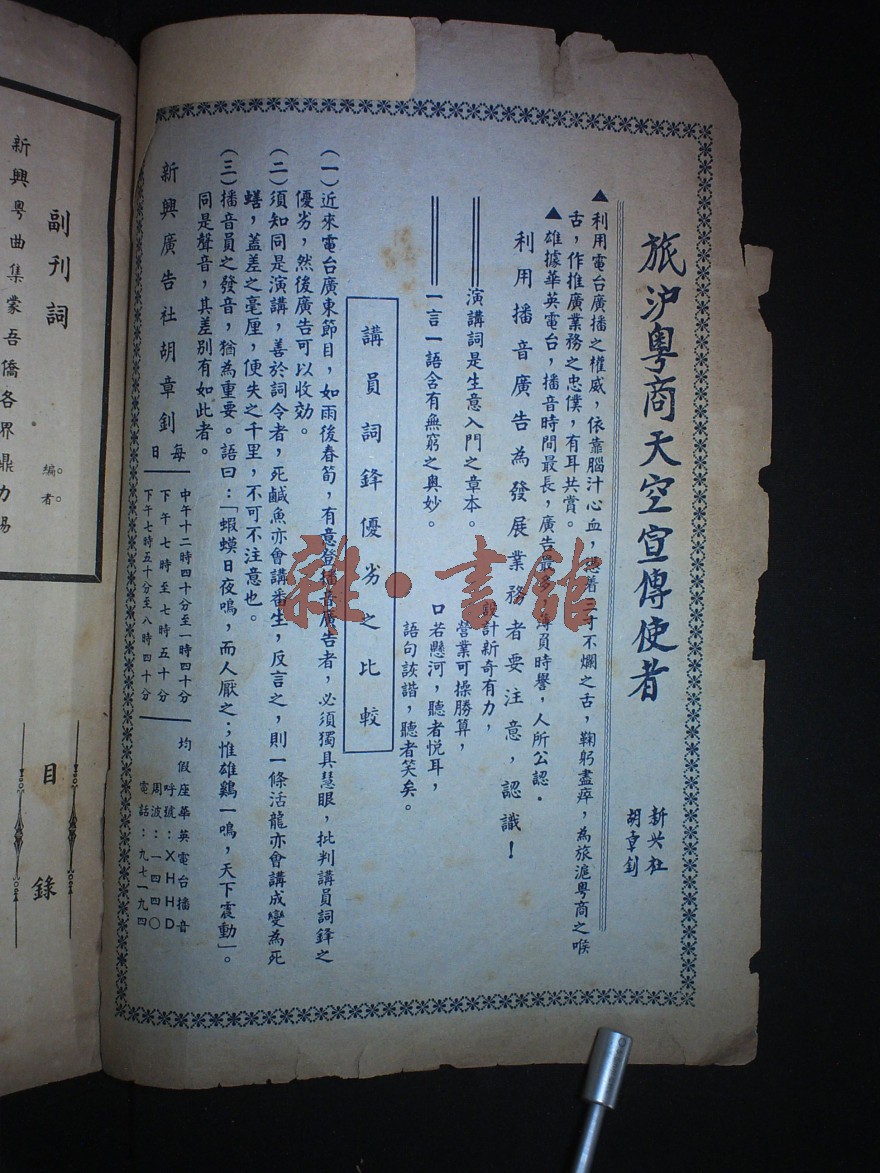 旅沪粤商天空宣傳使者
新兴社
胡章釗
▲利用電台廣播之權威，依靠腦汁心血，憑着三寸不爛之舌，鞠躬盡瘁，為旅滬粤商之喉
舌，作推廣業務之忠僕，有耳共賞。
▲雄據華英電台，播音時間最長，廣告最多，講員時譽，人所公認．
利用播音廣告為發展業務者要注意，認識！
設計新奇有力，
演講詞是生意入門之章本。
營業可操勝算，
口若懸河，聽者悦耳，
一言一語含有無窮之奥妙。
語句詼諧，聽者笑矣。
講員詞鋒優劣之比較
（一）近來電台廣東節目，如雨後春筍，有意登播音廣告者，必須獨具慧眼，批判講員詞鋒之
優劣，然後廣告可以收効。
（二）須知同是演講，善於詞令者，死鹹魚亦會講番生，反言之，則一條活龍亦會講成變為死
蟮，蓋差之毫厘，便失之千里，不可不注意也。
（三）播音員之發音，猶為重要。語曰：「蝦蟆日夜鳴，而人厭之；惟雄鷄一鳴，天下震動」。
同是聲音，其差别有如此者。
新興廣告社胡章釗
每日
中午十二時四十分至一時四十分
下午七時至七時五十分
下午七時五十分至八時四十分
均假座華英電台播音
呼號：XHHD
周波：一一四〇
電話：九七一九四
副刊詞
編者
新興粤曲集蒙吾僑各界鼎力
目錄
雜·書館